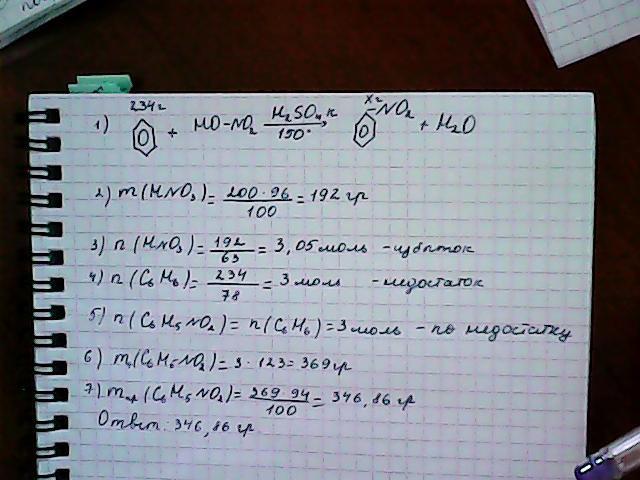 234 г x г
1) + HO-NO2 H2SO4 к 150° NO2 + H2O
2) m(HNO3) = 200·96 / 100 = 192 гр
3) n(HNO3) = 192 / 63 = 3,05 моль - избыток
4) n(C6H6) = 234 / 78 = 3 моль - недостаток
5) n(C6H5NO2) = n(C6H6) = 3 моль - по недостатку
6) m(C6H5NO2) = 3·123 = 369 гр
7) mпр(C6H5NO2) = 269·94 / 100 = 346,86 гр
Ответ: 346,86 гр